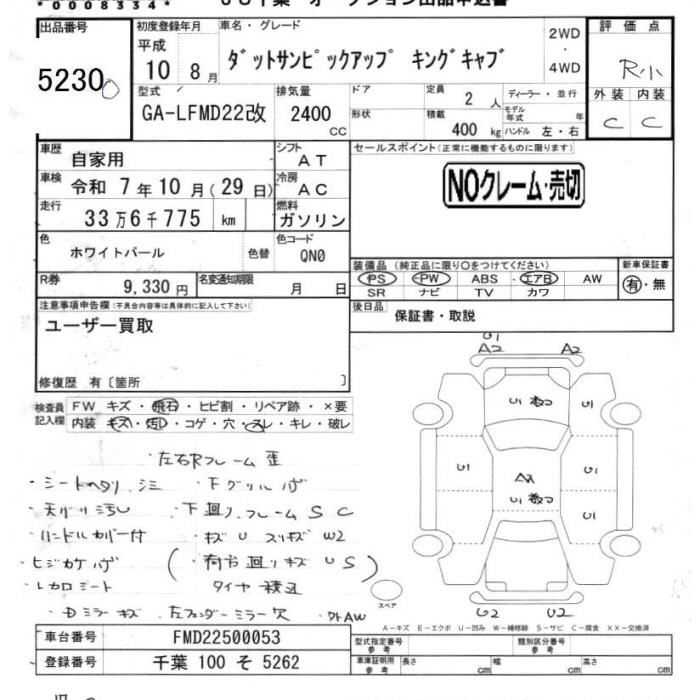 *0008334*
出品番号
5230
初度登録年月
平成
10 8月
車名・グレード
ダットサンピックアップ キングキャブ
2WD
・
4WD
評価点
R小
型式
GA-LFMD22改
排気量
2400
CC
ドア
形状
定員
2 人
積載
400 kg
ディーラー・並行
モデル年式 年
ハンドル 左・右
外装 内装
C C
車歴
自家用
シフト
AT
車検
令和 7年10月(29日)
冷房
AC
走行
33万6千775 km
燃料
ガソリン
色
ホワイトパール
色替
色コード
QN0
R券
9,330円
名変通知期限
月 日
セールスポイント(正常に機能するものに限ります)
NOクレーム・売切
装備品(純正品に限り○をつけてください)
PS PW ABS エアB AW
SR ナビ TV カワ
新車保証書
有・無
後日品
保証書・取説
注意事項申告欄(不具合内容等は具体的に記入して下さい)
ユーザー買取
修復歴 有〔箇所 〕
検査員
記入欄
FW キズ・飛石・ヒビ割・リペア跡・×要
内装 キズ・汚れ・コゲ・穴・スレ・キレ・破レ
左右Rフレーム歪
・シートヘタリ シミ
・下グリルハゲ
・天バリ汚レ
・下回フレーム S C
・ハンドルカバー付
・キズ U スリキズ W2
・ヒジカケハゲ
(荷台回リキズ U S)
・レカロシート
タイヤ積込
・Dミラーキズ
左フェンダーミラー欠
・社外AW
U1
A2 A2
U1
U1
U1
U1
A2
U1
U1
U2 U2
スペア
A-キズ E-エクボ U-凹み W-補修跡 S-サビ C-腐食 XX-交換済
車台番号
FMD22500053
登録番号
千葉 100 そ 5262
型式指定番号
参考
類別区分番号
参考
車庫証明用
参考
長さ cm
幅 cm
高さ cm